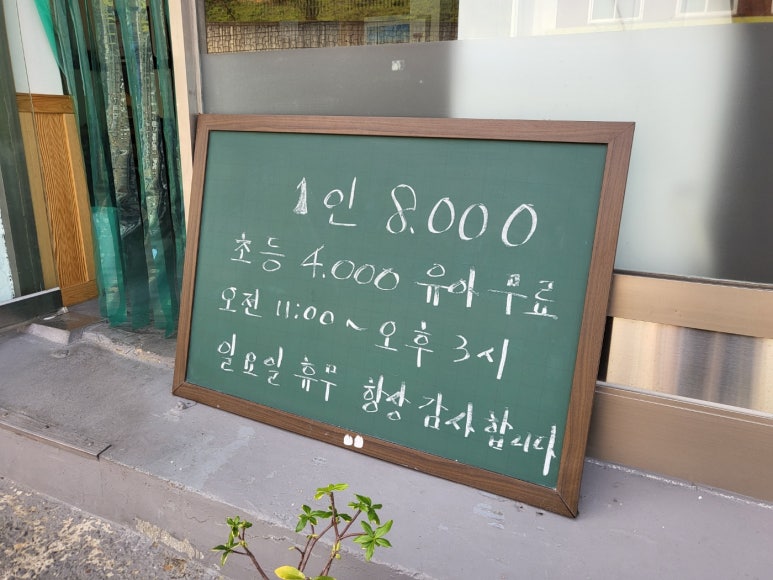 1인 8.000
초등 4.000 유아 무료
오전 11:00 ~ 오후 3시
일요일 휴무 항상 감사 합니다